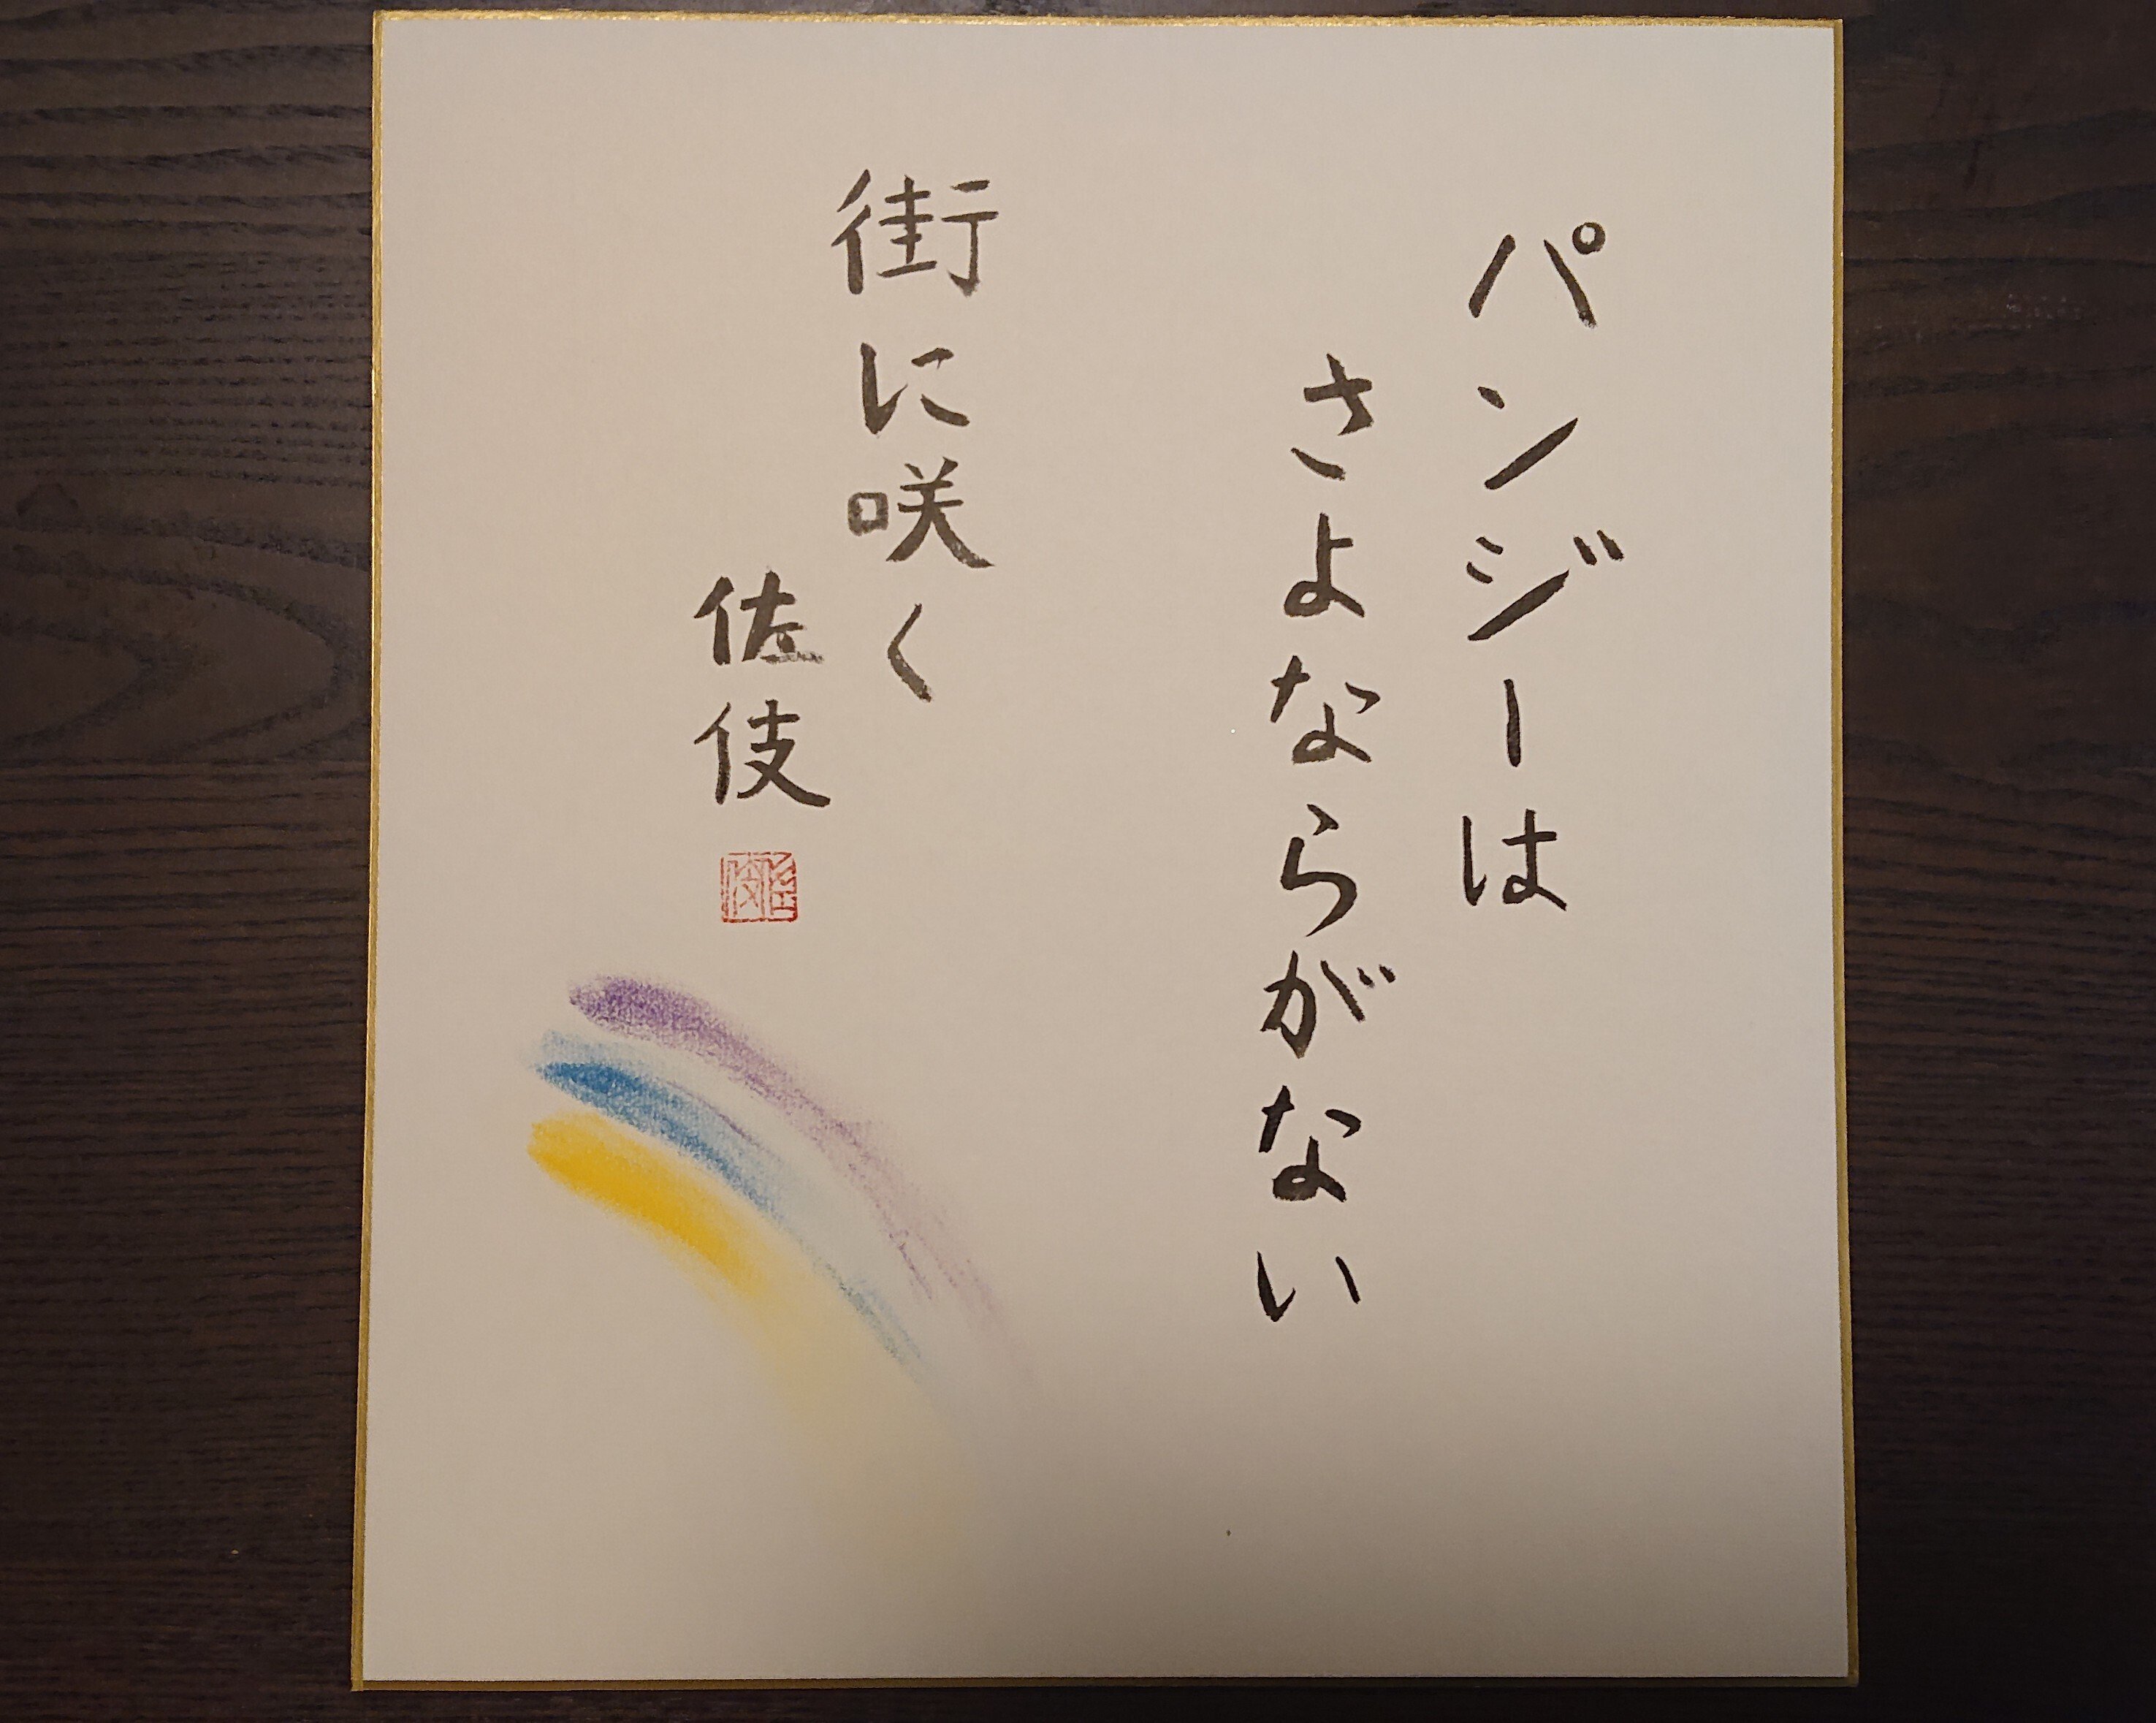 パンジーは
さよならがない
街に咲く
佐伎